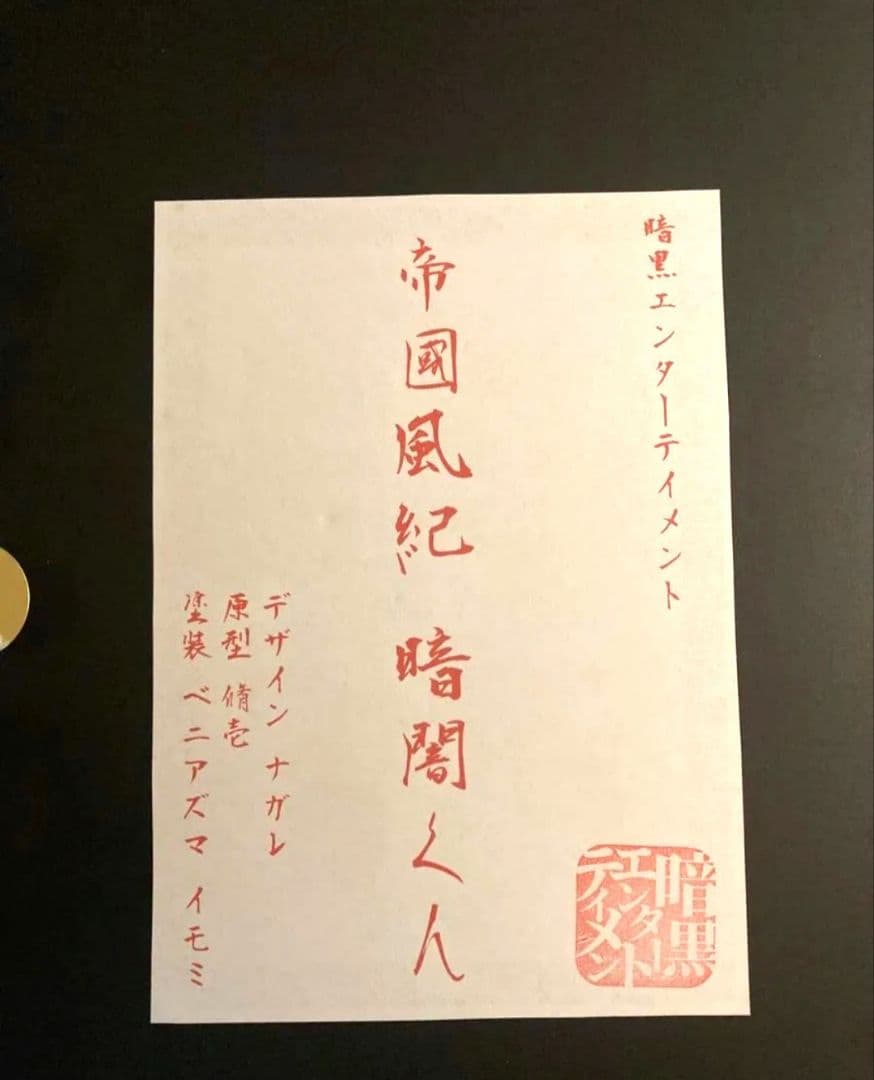 暗黒エンターテイメント
帝國風紀 暗闇くん
デザイン ナガレ
原型 脩壱
塗装 ベニアズマ イモミ
暗黒
エンター
テイメント